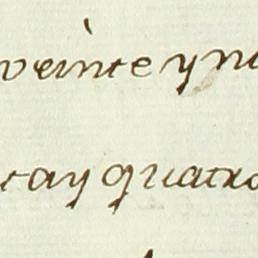 veinte y nu
tay quatro